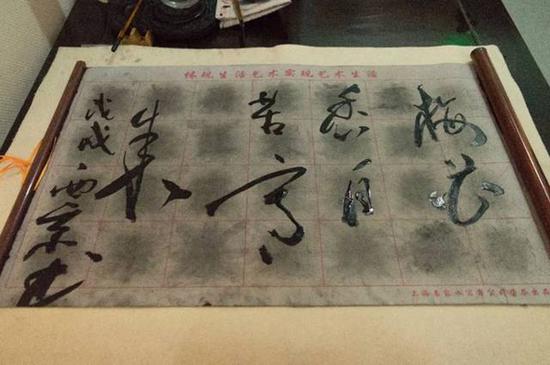 体现生活艺术实现艺术生活
梅花
香自
苦寒
来
戊戌西京